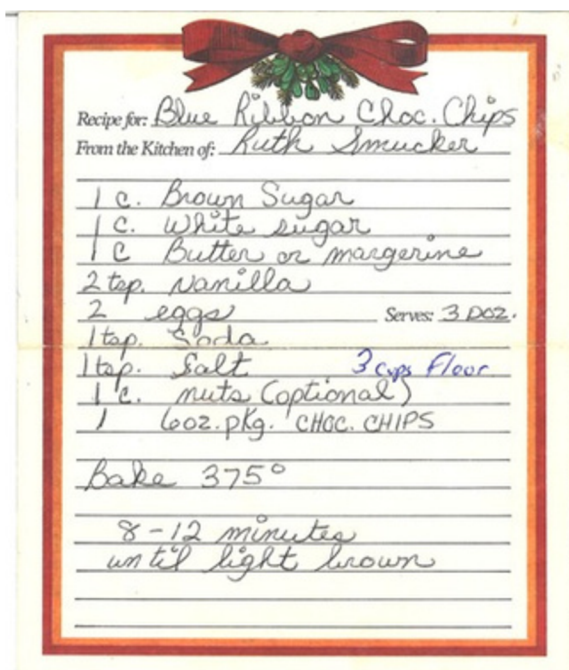 Recipe for: Blue Ribbon Choc. Chips
From the Kitchen of: Ruth Smucker
1 c. Brown Sugar
1 c. White sugar
1 c Butter or margerine
2 tsp. vanilla
2 eggs Serves: 3 Doz.
1 tsp. Soda
1 tsp. Salt 3 cups Floor
1 c. nuts (optional)
1 6oz. pkg. CHOC. CHIPS
Bake 375°
8-12 minutes
until light brown